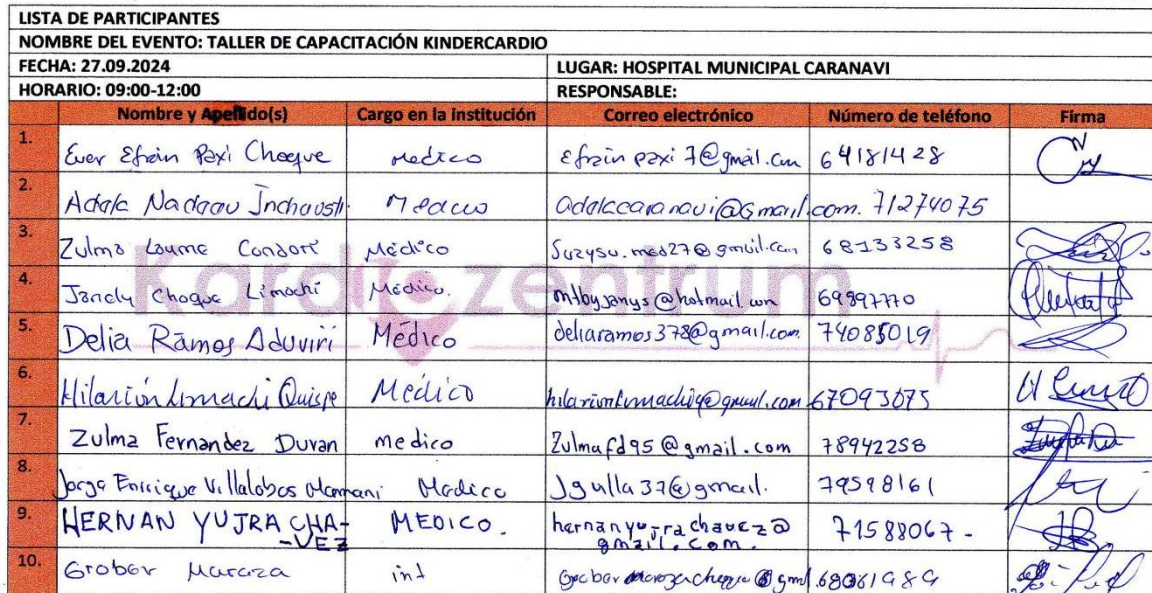 LISTA DE PARTICIPANTES
NOMBRE DEL EVENTO: TALLER DE CAPACITACIÓN KINDERCARDIO
FECHA: 27.09.2024 LUGAR: HOSPITAL MUNICIPAL CARANAVI
HORARIO: 09:00-12:00 RESPONSABLE:
Nombre y Apellido(s) Cargo en la institución Correo electrónico Número de teléfono Firma
1. Ever Efrain Paxi Choque medico efrain paxi 7@gmail.com 64181428
2. Medico adalacaranavi@Gmail.com. 71274075
3. Zulma Laume Condori Médico Suzysu.med27@gmail.com 68133258
4. Janely Choque Limachi Médico. @hotmail.com 69897770
Kardiozentrum
5. Delia Ramos Aduviri Médico deliaramos378@gmail.com. 74085019
6. Hilarión Limachi Quispe Médico
7. Zulma Fernandez Duran medico Zulmafd95@gmail.com 78942258
8. Jorge Enrique Villalobos Mamani Medico Jgulla37@gmail. 79598161
9. HERNAN YUJRA CHA- MEDICO. hernanyujrachavez@ 71588067-
-VEZ gmail.com.
10. Grober Maraza int